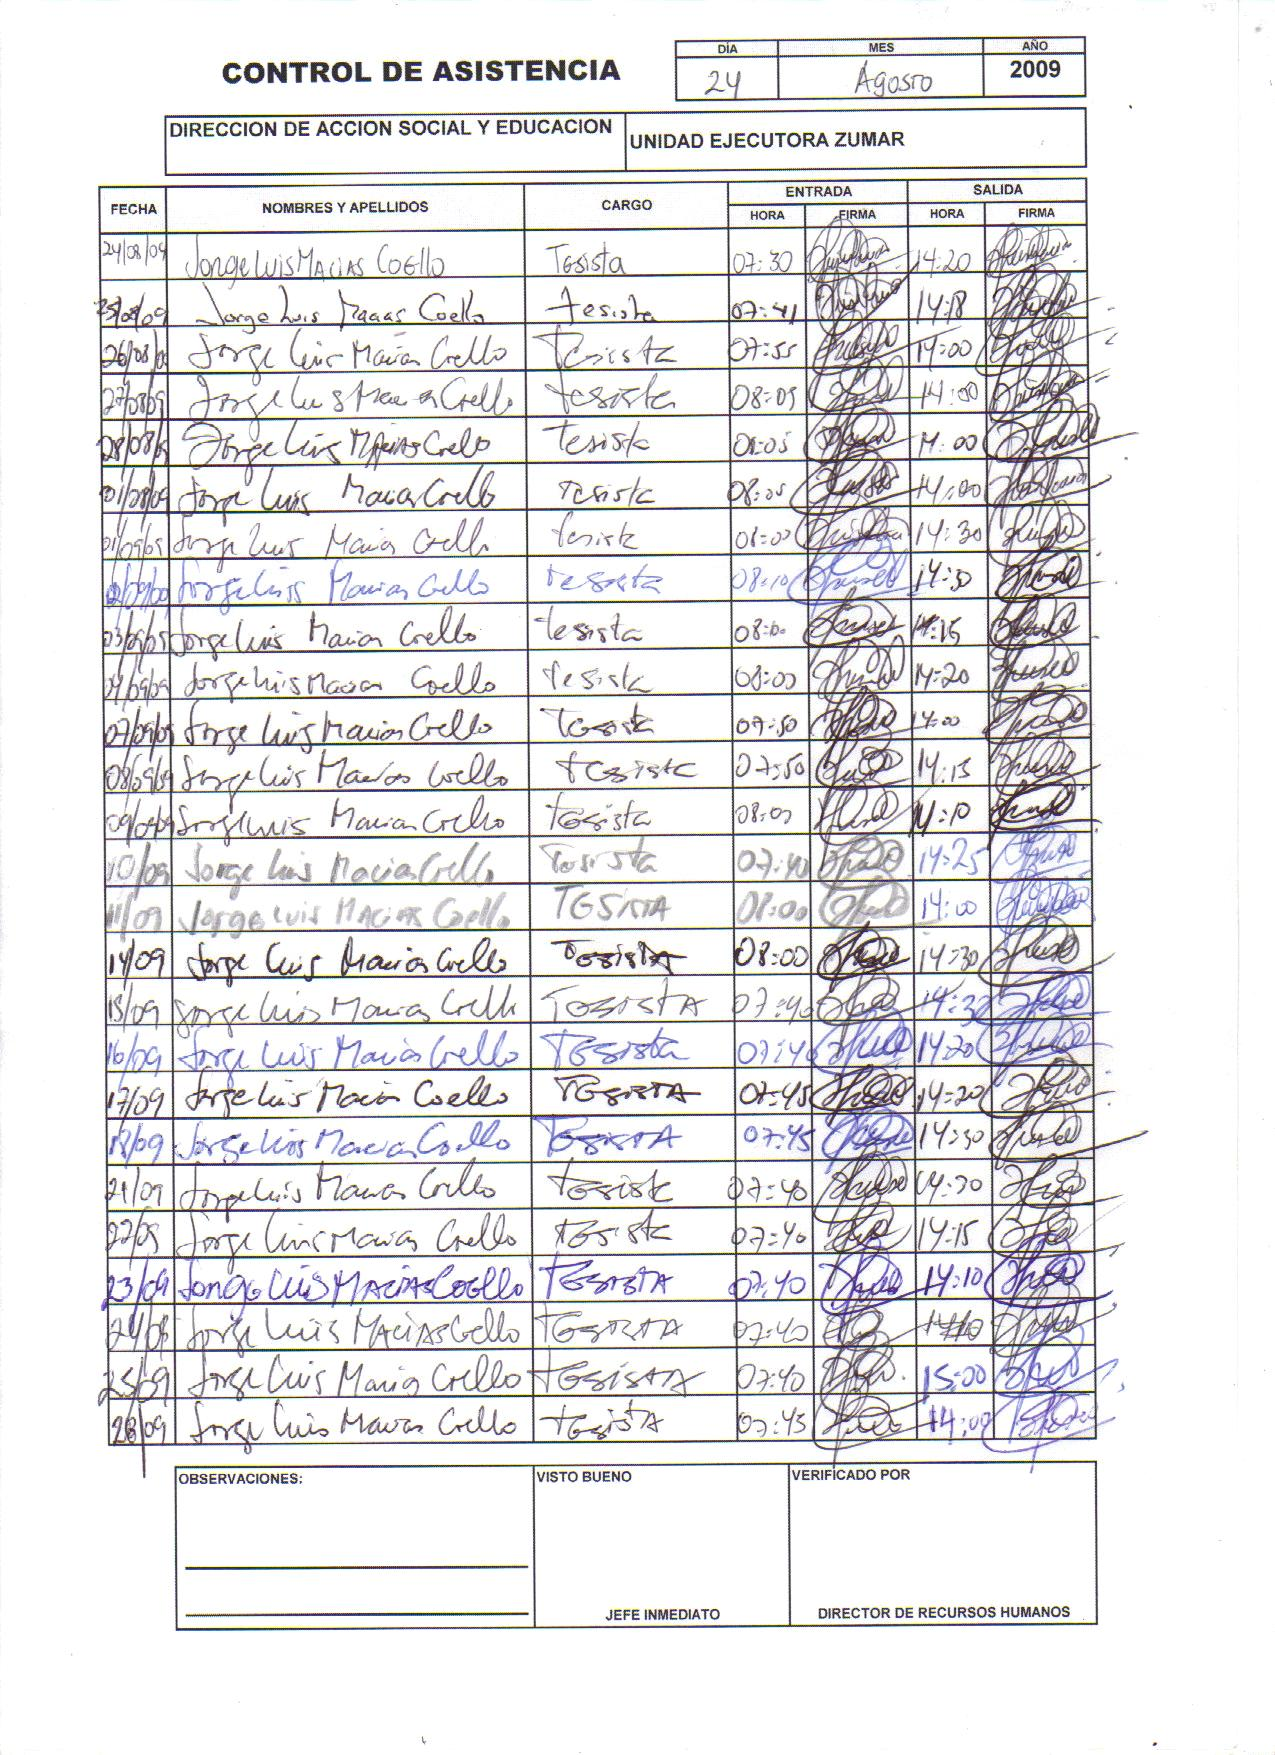 CONTROL DE ASISTENCIA
DÍA MES AÑO
24 Agosto 2009
DIRECCION DE ACCION SOCIAL Y EDUCACION UNIDAD EJECUTORA ZUMAR
FECHA NOMBRES Y APELLIDOS CARGO ENTRADA SALIDA
HORA FIRMA HORA FIRMA
24/08/09 Jorge Luis Macias Coello Tesista 07:30 14:20
25/08/09 Jorge Luis Macias Coello tesista 07:41 14:18
26/08/09 Jorge Luis Macias Coello Tesista 07:55 14:00
27/08/09 Jorge Luis Macias Coello tesista 08:05 14:00
28/08/09 Jorge Luis Macias Coello tesista 08:05 14:00
Jorge Luis Macias Coello tesista 08:05 14:00
01/09/09 Jorge Luis Macias Coello tesista 08:00 14:30
02/09/09 Jorge Luis Macias Coello tesista 08:10 14:30
03/09/09 Jorge Luis Macias Coello tesista 14:15
04/09/09 Jorge Luis Macias Coello tesista 08:00 14:20
07/09/09 Jorge Luis Macias Coello Tesista 07:50 14:00
08/09/09 Jorge Luis Macias Coello tesista 07:50 14:15
09/09/09 Jorge Luis Macias Coello tesista 08:00 14:10
10/09 Jorge Luis Macias Coello Tesista 07:40 14:25
11/09 Jorge Luis Macias Coello Tesista 08:00 14:00
14/09 Jorge Luis Macias Coello Tesista 08:00 14:30
15/09 Jorge Luis Macias Coello Tesista 07:40 14:32
16/09 Jorge Luis Macias Coello Tesista 07:40 14:20
17/09 Jorge Luis Macias Coello TESISTA 07:45 14:20
18/09 Jorge Luis Macias Coello Tesista 07:45 14:30
21/09 Jorge Luis Macias Coello tesista 07:40 14:30
22/09 Jorge Luis Macias Coello tesista 07:40 14:15
23/09 Jorge Luis Macias Coello TESISTA 07:40 14:10
24/09 Jorge Luis Macias Coello TESISTA 07:40
25/09 Jorge Luis Macias Coello TESISTA 07:40 15:00
28/09 Jorge Luis Macias Coello tesista 07:45 14:00
OBSERVACIONES: VISTO BUENO VERIFICADO POR
JEFE INMEDIATO DIRECTOR DE RECURSOS HUMANOS